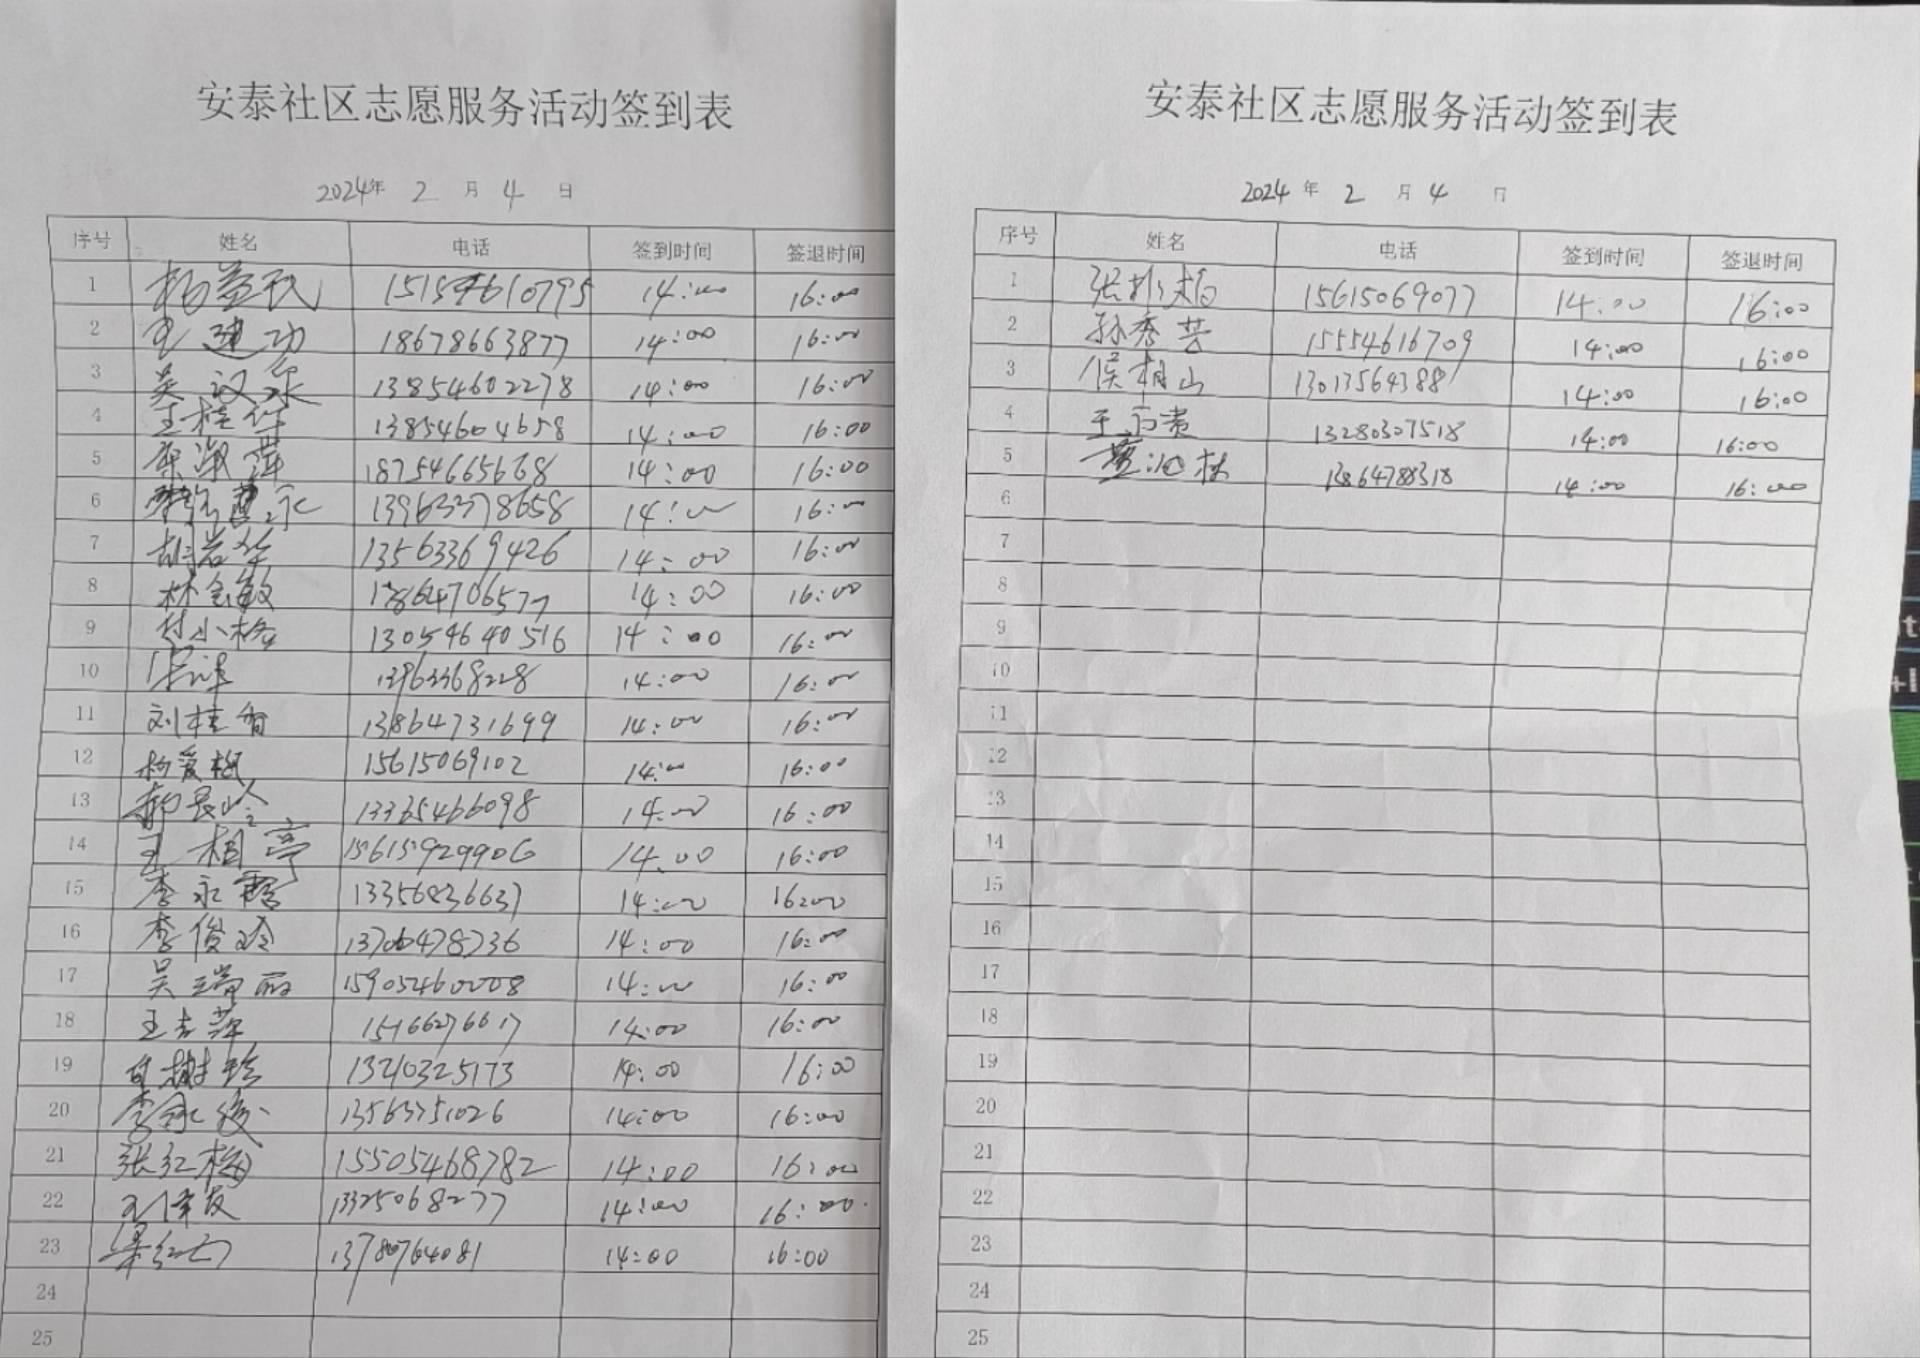 安泰社区志愿服务活动签到表
2024年 2 月 4 日
序号 姓名 电话 签到时间 签退时间
1 杨益民 15154610795 14:00 16:00
2 王建功 18678663877 14:00 16:00
3 吴汉泉 13854602278 14:00 16:00
4 王桂华 13854604658 14:00 16:00
5 18754665668 14:00 16:00
6 13963378658 14:00 16:00
7 胡岩华 13563369426 14:00 16:00
8 林金敏 13864706577 14:00 16:00
9 付小格 13054640516 14:00 16:00
10 13963368228 14:00 16:00
11 刘桂香 13864731699 14:00 16:00
12 杨爱枫 15615069102 14:00 16:00
13 郝艮岭 13365466098 14:00 16:00
14 王相亭 15615929906 14:00 16:00
15 李永霞 13356636637 14:00 16:00
16 李俊玲 13706478736 14:00 16:00
17 吴瑞丽 15905460008 14:00 16:00
18 王吉萍 15166276617 14:00 16:00
19 13210325173 14:00 16:00
20 李永俊 13563751026 14:00 16:00
21 张红梅 15505468782 14:00 16:00
22 13325068277 14:00 16:00
23 13780764081 14:00 16:00
24
25
安泰社区志愿服务活动签到表
2024 年 2 月 4 日
序号 姓名 电话 签到时间 签退时间
1 15615069077 14:00 16:00
2 孙秀芸 15554616709 14:00 16:00
3 侯相山 13013564388 14:00 16:00
4 13280307518 14:00 16:00
5 13864788318 14:00 16:00
6
7
8
9
10
11
12
13
14
15
16
17
18
19
20
21
22
23
24
25